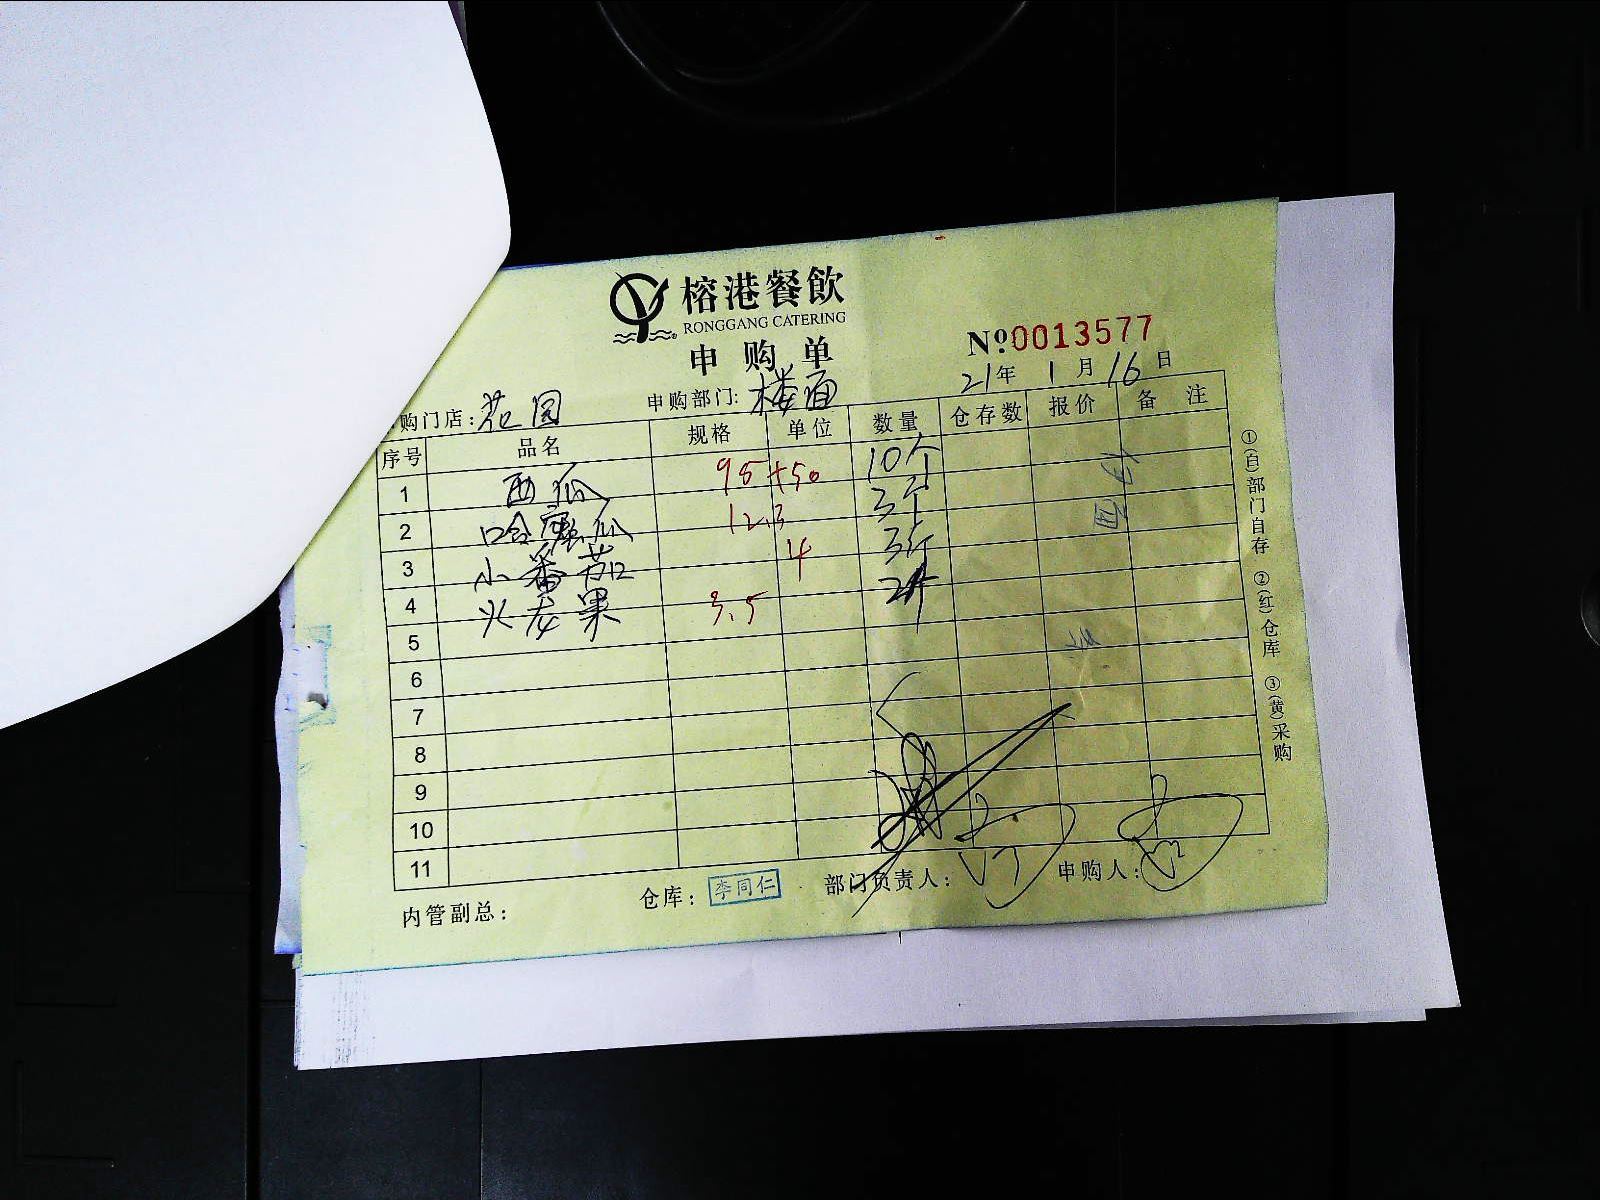 榕港餐飲
RONGGANG CATERING
申购单
№0013577
购门店：花园 申购部门：楼面 21年1月16日
序号 品名 规格 单位 数量 仓存数 报价 备注
1 西瓜 95+50 10个
2 哈蜜瓜 12.3 3个
3 小番茄 4 3斤
4 火龙果 3.5 2件
5
6
7
8
9
10
11
内管副总： 仓库：李同仁 部门负责人： 申购人：
①(白)部门自存 ②(红)仓库 ③(黄)采购